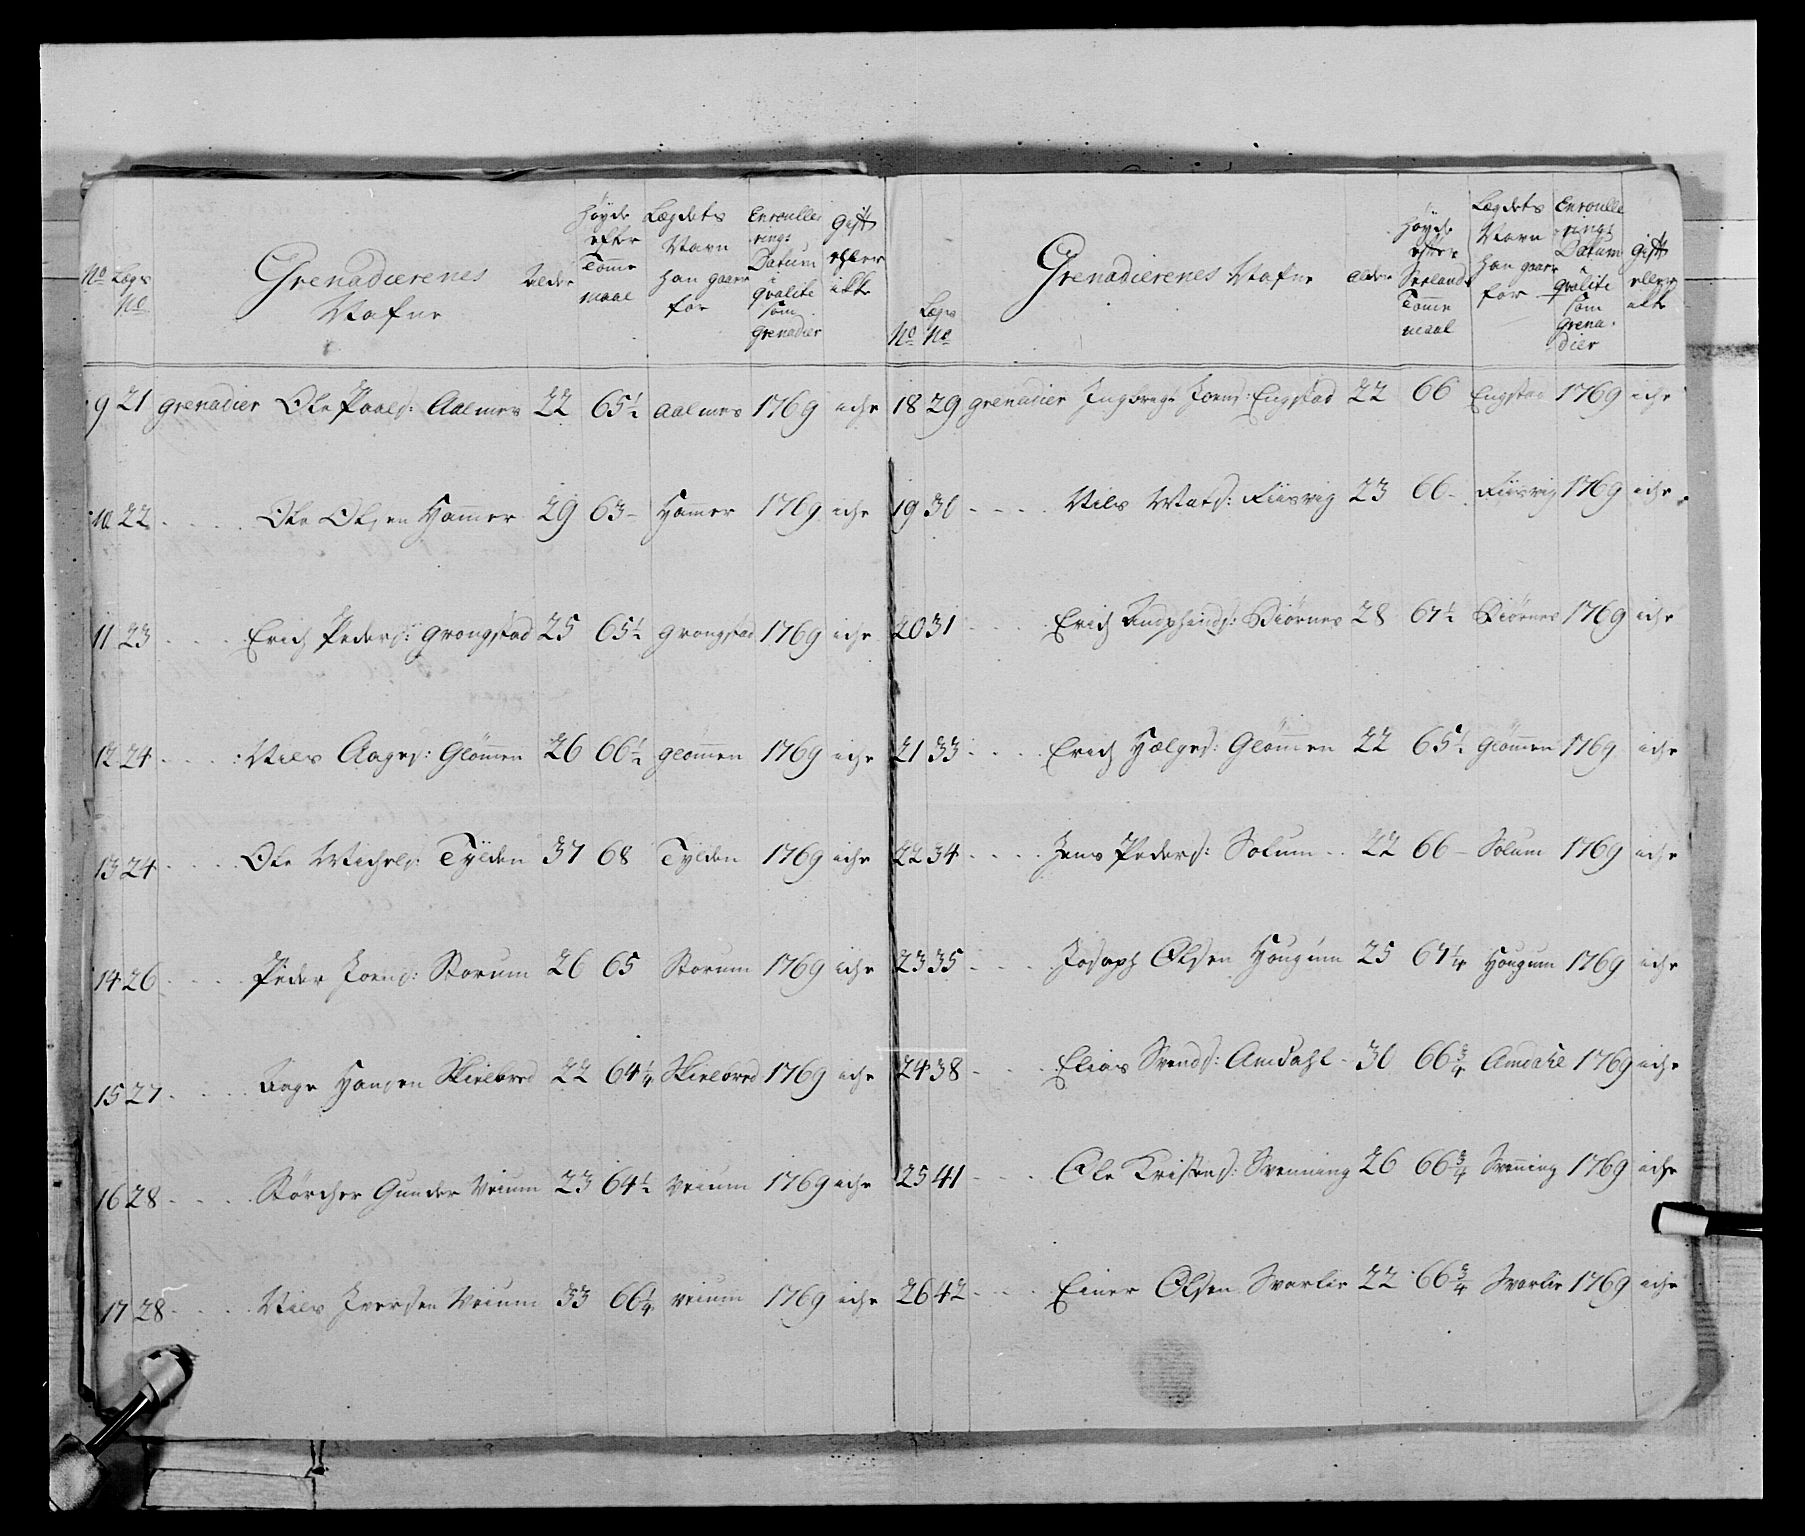 No Legs No Grenadierenes Nafne Alder Høyde efter Tomme maal Legdets Navn han gaaer for Enroullerings Datum i qvalite som grenadier gift eller ikke
9 21 grenadier Ole Poels: Aalmes 22 65½ Aalmes 1769 iche
10 22 Ole Olsen Hammer 29 63 Hammer 1769 iche
11 23 Erich Peders: grongstad 25 65½ grongstad 1769 iche
12 24 Niels Aages: Glömmen 26 66½ glömmen 1769 iche
13 24 Ole Michels: Tylden 37 68 Tylden 1769 iche
14 26 Peder Joens: Storum 26 65 Storum 1769 iche
15 27 Aage Hansen 22 64¼ 1769 iche
16 28 Störcher Gunder Veium 23 64½ Veium 1769 iche
17 28 Niels Iversen Veium 33 66¼ Veium 1769 iche
No Legs No Grenadierenes Nafne alder Høyde efter Seelands Tomme maal Legdets Navn han gaaer for Enroullerings Datum i qvalite som grenadier gift eller ikke
18 29 grenadier Ingebrigt Joens: Engstad 22 66 Engstad 1769 iche
19 30 Niels Mats: Fiisvig 23 66 Fiisvig 1769 iche
20 31 Erich Biörnes 28 67½ Biörnes 1769 iche
21 33 Erich Helges: Glömmen 22 65½ Glömmen 1769 iche
22 34 Jens Peders: Solum 22 66 Solum 1769 iche
23 35 Joseph Olsen Hougum 25 67¼ Hougum 1769 iche
24 38 Elias Svends: Amdahl 30 66¾ Amdahl 1769 iche
25 41 Ole Kristens: Svenning 26 66¾ Svenning 1769 iche
26 42 Einer Olsen Svarlie 22 66¾ Svarlie 1769 iche